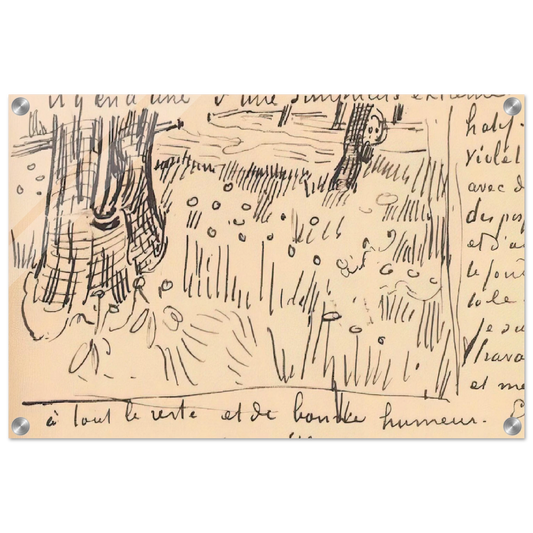 il y en a une d'une simplicité extrême
haly
violet
avec d
des po
et d'a
le fon
tole
je su
Trava
et me
à tout le reste et de bonne humeur.